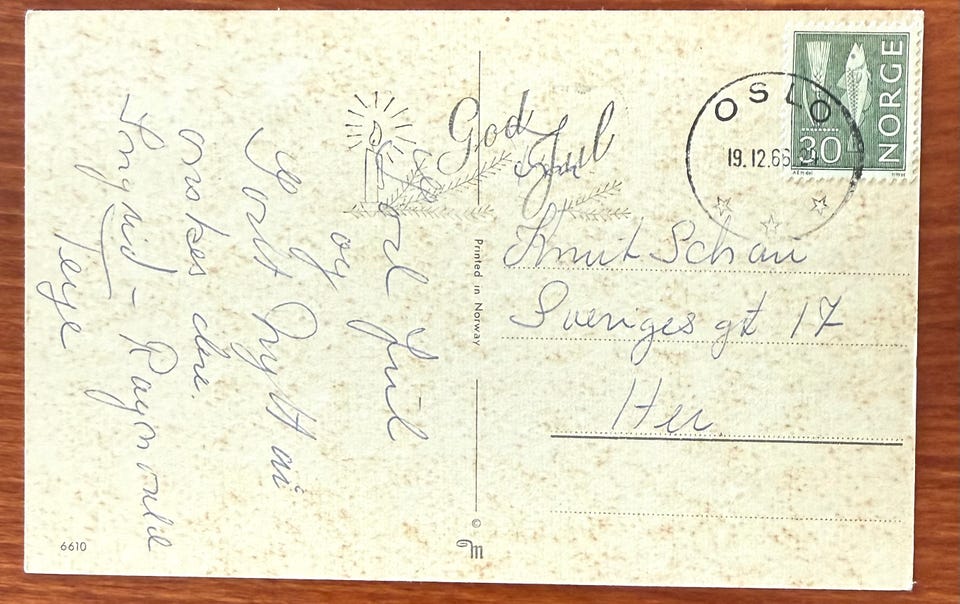 God Jul
OSLO
19.12.66
NORGE
30
God Jul
og
Godt Nytt år
ønskes dere.
Ingrid - Raymond
Terje
Printed in Norway
©
M
6610
Knut Schau
Sveriges gt 17
Her